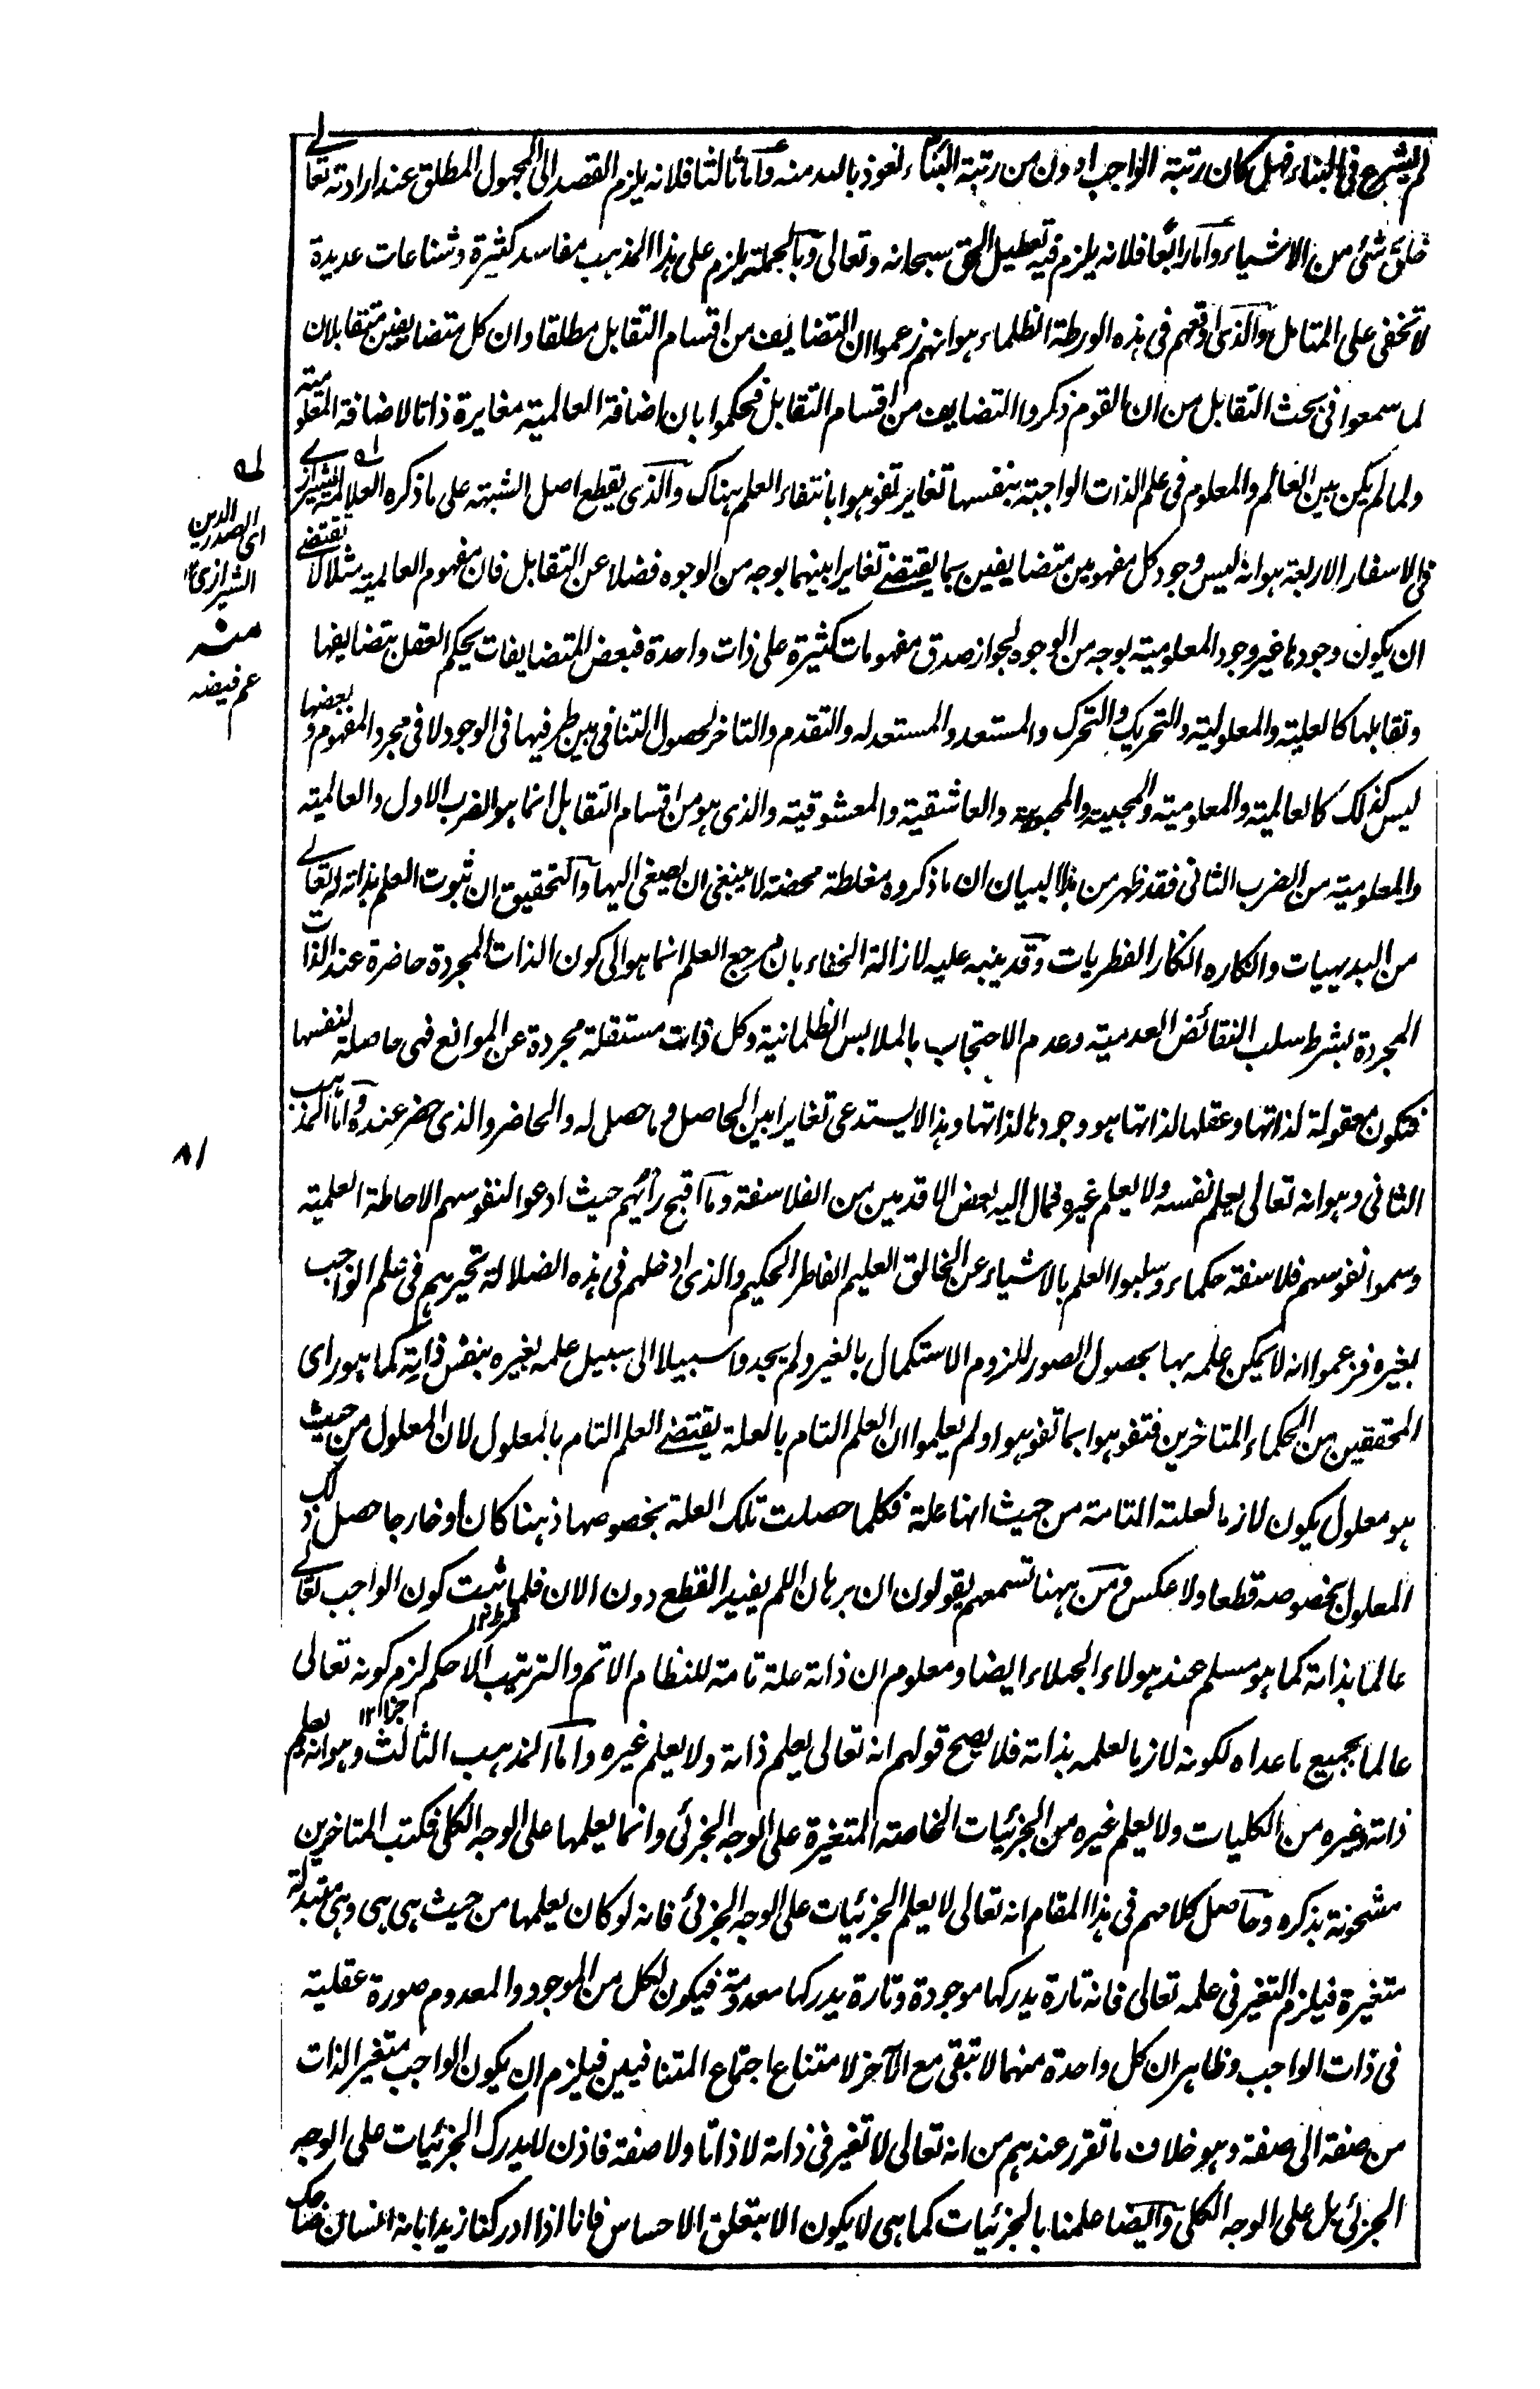 لم يشرع فى البناء فهل كان رتبة الواجب ادون من رتبة البناء نعوذ بالله منه وأما ثالثا فلانه يلزم القصد الى المجهول المطلق عند ارادته تعالى
خلق شئ من الاشياء وأما رابعا فلانه يلزم فيه تعطيل الحق سبحانه وتعالى وبالجملة يلزم على هذا المذهب مفاسد كثيرة وشناعات عديدة
لا تخفى على المتامل والذى اوقعهم فى هذه الورطة الظلماء هو انهم زعموا ان التضايف من اقسام التقابل مطلقا وان كل متضايفين متقابلان
لما سمعوا فى بحث التقابل من ان القوم ذكروا التضايف من اقسام التقابل فحكموا بان اضافة العالمية مغايرة ذاتا لاضافة المعلومية
ولما لم يكن بين العالم والمعلوم فى علم الذات الواجبة بنفسها تغاير تفوهوا بانتفاء العلم هناك والذى يقطع اصل الشبهة على ما ذكره العلامة الشيرازى
فى الاسفار الاربعة هو انه ليس وجود كل مفهومين متضايفين مما يقتضى تغايرا بينهما بوجه من الوجوه فضلا عن التقابل فان مفهوم العالمية مثلا لا يقتضى
ان يكون وجودها غير وجود المعلومية بوجه من الوجوه لجواز صدق مفهومات كثيرة على ذات واحدة فبعض المتضايفات يحكم العقل بتضايفها
وتقابلها كالعلية والمعلولية والتحريك والتحرك والمستعد والمستعد له والتقدم والتاخر لحصول التنافى بين طرفيها فى الوجود لا فى مجرد المفهوم وبعضها
ليس كذلك كالعالمية والمعلومية والمحبية والمحبوبية والعاشقية والمعشوقية والذى هو من اقسام التقابل انما هو الضرب الاول والعالمية
والمعلومية من الضرب الثانى فقد ظهر من هذا البيان ان ما ذكروه مغلطة محضة لا ينبغى ان يصغى اليها والتحقيق ان ثبوت العلم بذاته له تعالى
من البديهيات وانكاره انكار الفطريات وقد ينبه عليه لازالة الخفاء بان مرجع العلم انما هو الى كون الذات المجردة حاضرة عند الذات
المجردة بشرط سلب النقائض العدمية وعدم الاحتجاب بالملابس الظلمانية وكل ذات مستقلة مجردة عن الموانع فهى حاصلة لنفسها
فتكون معقولة لذاتها وعقلها لذاتها هو وجودها لذاتها وهذا لا يستدعى تغايرا بين الحاصل وما حصل له والحاضر والذى حضر عنده وأما المذهب
الثانى وهو انه تعالى يعلم نفسه ولا يعلم غيره فمال اليه بعض الاقدمين من الفلاسفة وما اقبح رأيهم حيث ادعوا لنفوسهم الاحاطة العلمية
وسموا نفوسهم فلاسفة حكماء وسلبوا العلم بالاشياء عن الخالق العليم الفاطر الحكيم والذى ادخلهم فى هذه الضلالة تحيرهم فى علم الواجب
بغيره فزعموا انه لا يمكن علمه بها بحصول الصور للزوم الاستكمال بالغير ولم يجدوا سبيلا الى سبيل علمه بغيره بنفس ذاته كما هو راى
المحققين من الحكماء المتاخرين فتفوهوا بما تفوهوا ولم يعلموا ان العلم التام بالعلة يقتضى العلم التام بالمعلول لان المعلول من حيث
هو معلول يكون لازما لعلته التامة من حيث انها علة فكلما حصلت تلك العلة بخصوصها ذهنا كان او خارجا حصل ذلك
المعلول بخصوصه قطعا ولا عكس ومن ههنا تسمعهم يقولون ان برهان اللم يفيد القطع دون الان فلما ثبت كون الواجب تعالى
عالما بذاته كما هو مسلم عند هولاء الجهلاء ايضا ومعلوم ان ذاته علة تامة للنظام الاتم والترتيب الاحكم لزم كونه تعالى
عالما بجميع ما عداه لكونه لازما لعلمه بذاته فلا يصح قولهم انه تعالى يعلم ذاته ولا يعلم غيره واما المذهب الثالث وهو انه يعلم
ذاته وغيره من الكليات ولا يعلم غيره من الجزئيات الخاصة المتغيرة على الوجه الجزئى وانما يعلمها على الوجه الكلى فكتب المتاخرين
مشحونة بذكره وحاصل كلامهم فى هذا المقام انه تعالى لا يعلم الجزئيات على الوجه الجزئى فانه لو كان يعلمها من حيث هى هى وهى متبدلة
متغيرة فيلزم التغير فى علمه تعالى فانه تارة يدركها موجودة وتارة يدركها معدومة فيكون لكل من الموجود والمعدوم صورة عقلية
فى ذات الواجب وظاهر ان كل واحدة منهما لا تبقى مع الآخر لامتناع اجتماع المتنافيين فيلزم ان يكون الواجب متغير الذات
من صفة الى صفة وهو خلاف ما تقرر عندهم من انه تعالى لا تغير فى ذاته لا ذاتا ولا صفة فاذن لا يدرك الجزئيات على الوجه
الجزئى بل على الوجه الكلى وايضا علمنا بالجزئيات كما هى لا يكون الا بتعلق الاحساس فانا اذا ادركنا زيدا بانه انسان ضاحك
له
اى الصدر الدين
الشيرازى
منه
عم فيضه
٨١